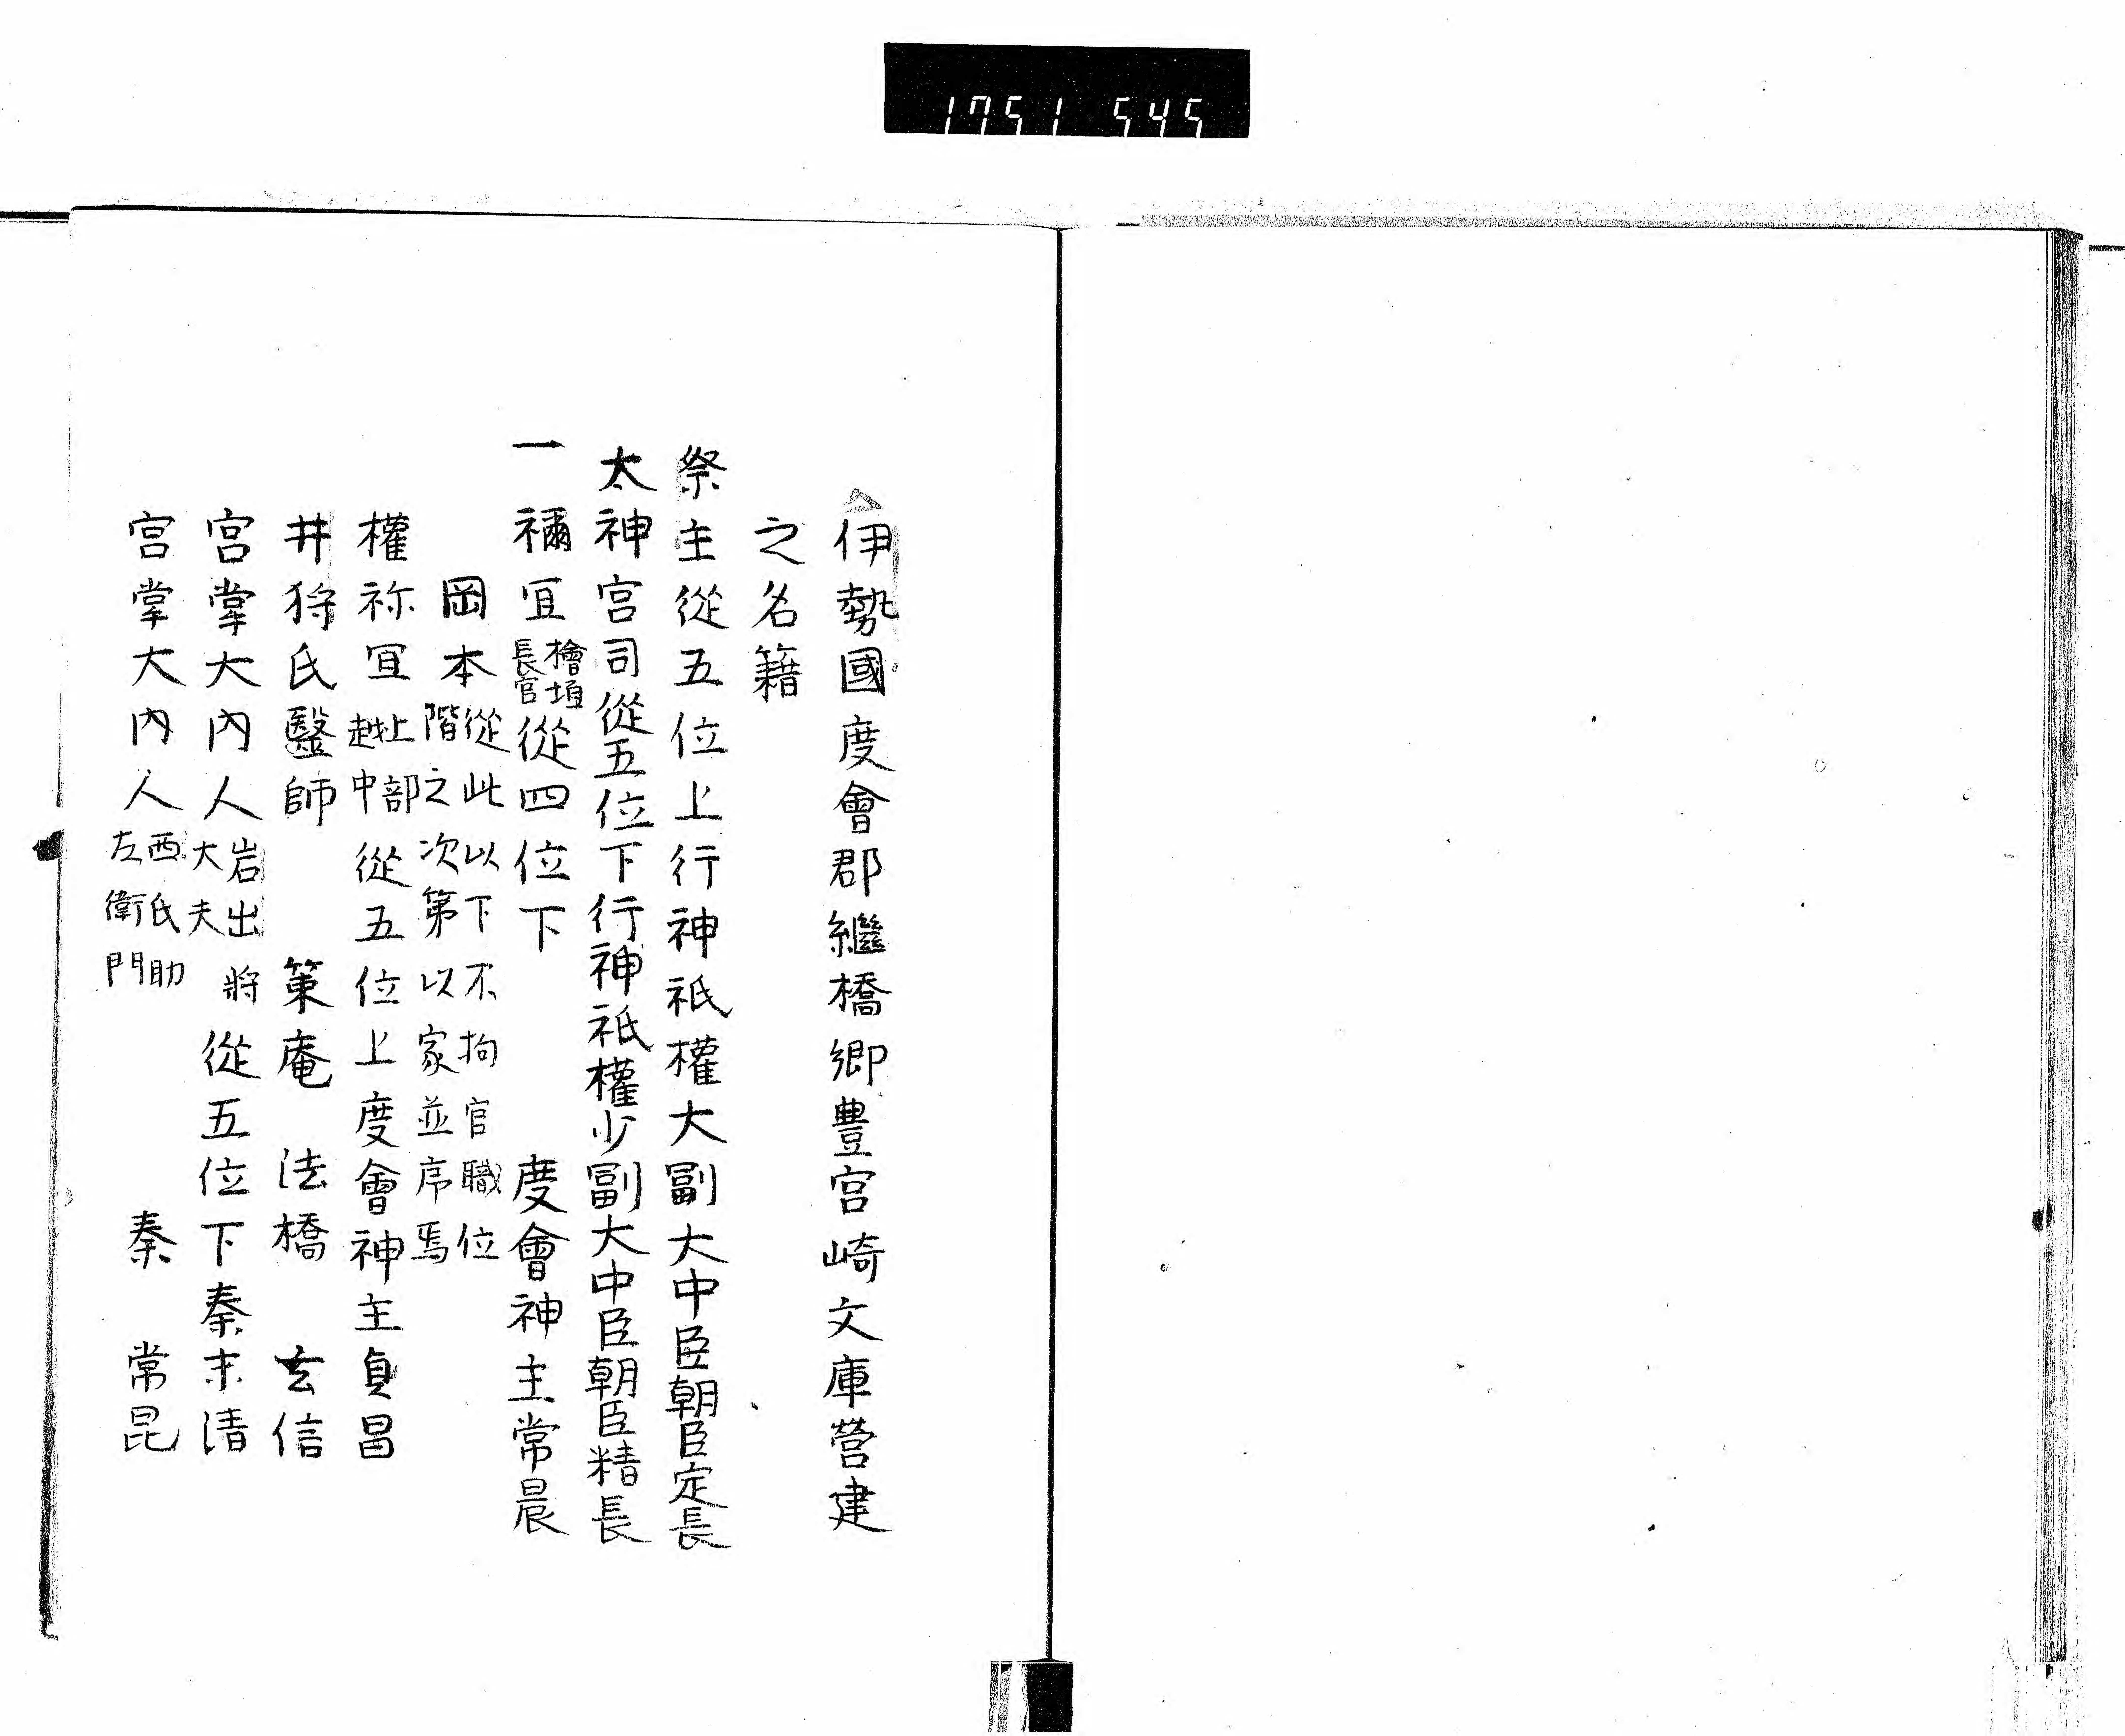 1751 545
伊勢國度會郡繼橋鄉豊宮崎文庫營建
之名籍
祭主從五位上行神祇權大副大中臣朝臣定長
太神宮司從五位下行神祇權少副大中臣朝臣精長
一禰宜檜垣長官從四位下 度會神主常晨
岡本從此以下不拘官職位階之次第以家並序焉
權祢宜上部越中從五位上度會神主貞昌
井狩氏醫師 策庵 法橋 玄信
宮掌大内人岩出將大夫從五位下秦末清
宮掌大内人西氏助左衛門 秦 常昆